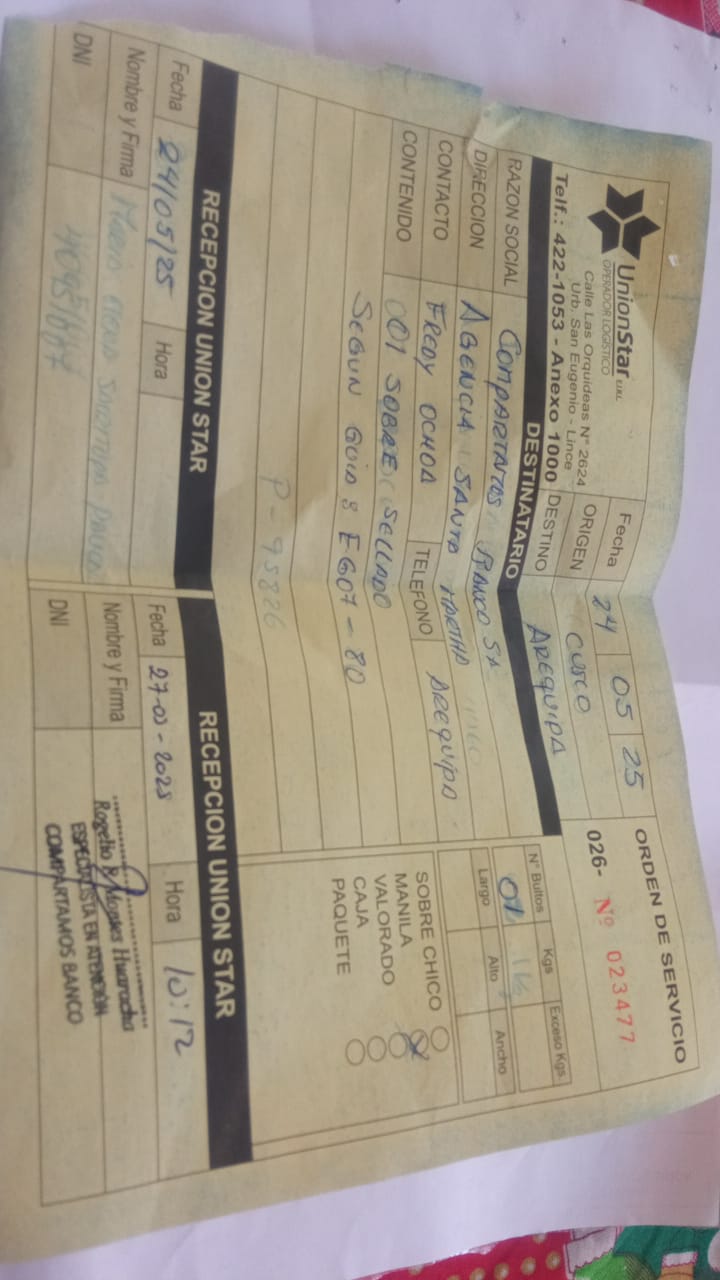 UnionStar E.I.R.L.
OPERADOR LOGISTICO
Calle Las Orquideas N° 2624
Urb. San Eugenio - Lince
Telf.: 422-1053 - Anexo 1000
Fecha 24 05 25
ORIGEN CUSCO
DESTINO AREQUIPA
ORDEN DE SERVICIO
026- Nº 023477
DESTINATARIO
RAZON SOCIAL COMPARTAMOS BANCO SA
DIRECCION AGENCIA SANTA MARTHA
CONTACTO FREDY OCHOA TELEFONO AREQUIPA
CONTENIDO 001 SOBRE SELLADO
SEGUN GUIA: EG07-80
P-95826
N° Bultos Kgs Exceso Kgs
01 1K
Largo Alto Ancho
SOBRE CHICO
MANILA
VALORADO
CAJA
PAQUETE
RECEPCION UNION STAR
Fecha 24/05/25 Hora
Nombre y Firma MARIO
DNI
RECEPCION UNION STAR
Fecha 27-05-2025 Hora 10:12
Nombre y Firma
DNI
Rogelio B. Montes Huaracha
ESPECIALISTA EN ATENCIÓN
COMPARTAMOS BANCO